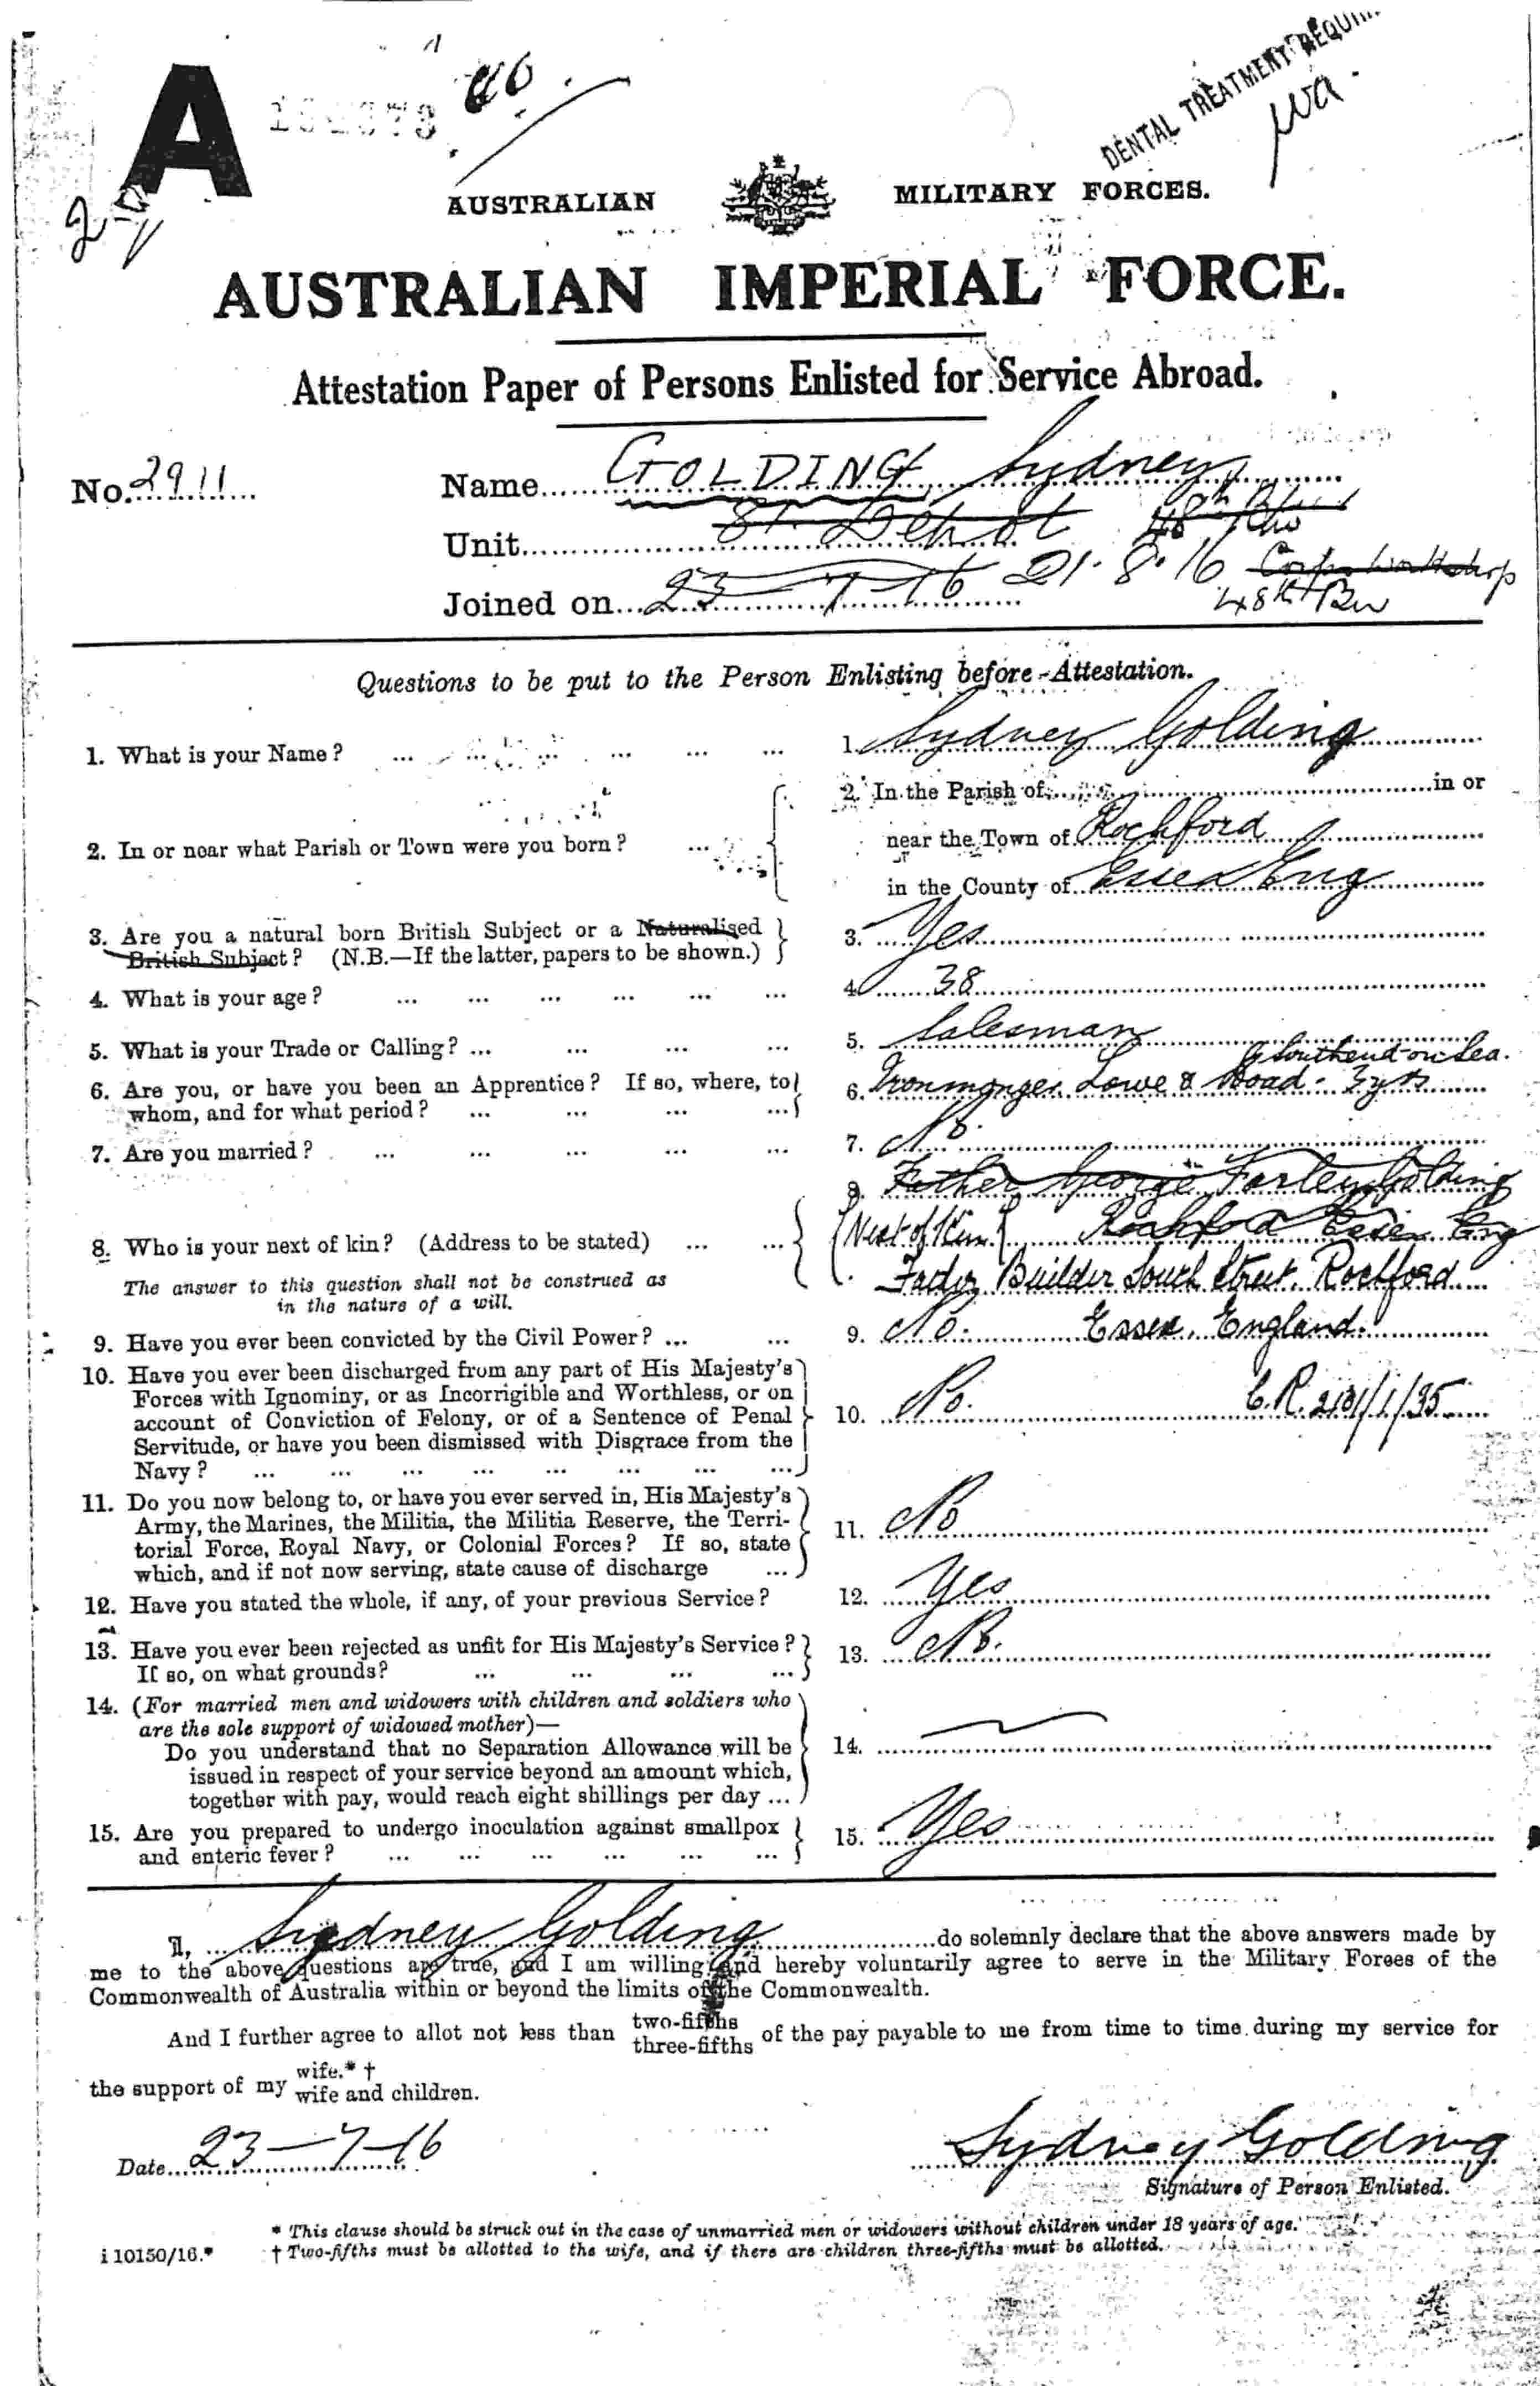 A
DENTAL TREATMENT
AUSTRALIAN MILITARY FORCES.
AUSTRALIAN IMPERIAL FORCE.
Attestation Paper of Persons Enlisted for Service Abroad.
No. 2911 Name GOLDING, Sydney
Unit Depot 48th
Joined on 23-7-16 21.8.16
48th Bn
Questions to be put to the Person Enlisting before Attestation.
1. What is your Name? ... 1. Sydney Golding
2. In the Parish of in or
2. In or near what Parish or Town were you born? ... near the Town of Rochford
in the County of Essex Eng
3. Are you a natural born British Subject or a Naturalised British Subject? (N.B.—If the latter, papers to be shown.) 3. Yes
4. What is your age? ... 4. 38
5. What is your Trade or Calling? ... 5. Salesman
Southend-on-Sea.
6. Are you, or have you been an Apprentice? If so, where, to 6. Ironmonger Lowe & Hoad - 3 yrs
whom, and for what period? ...
7. Are you married? ... 7. No.
8. Father George Farley Golding
Next of Kin Rochford Essex Eng
8. Who is your next of kin? (Address to be stated) ...
Father, Builder South Street, Rochford
The answer to this question shall not be construed as
in the nature of a will.
Essex, England.
9. Have you ever been convicted by the Civil Power? ... 9. No.
10. Have you ever been discharged from any part of His Majesty's
Forces with Ignominy, or as Incorrigible and Worthless, or on
account of Conviction of Felony, or of a Sentence of Penal 10. No. C.R.
Servitude, or have you been dismissed with Disgrace from the
Navy? ...
11. Do you now belong to, or have you ever served in, His Majesty's
Army, the Marines, the Militia, the Militia Reserve, the Terri-
torial Force, Royal Navy, or Colonial Forces? If so, state 11. No
which, and if not now serving, state cause of discharge ...
12. Have you stated the whole, if any, of your previous Service? 12. Yes
13. Have you ever been rejected as unfit for His Majesty's Service? 13. No.
If so, on what grounds? ...
14. (For married men and widowers with children and soldiers who
are the sole support of widowed mother)—
Do you understand that no Separation Allowance will be 14.
issued in respect of your service beyond an amount which,
together with pay, would reach eight shillings per day ...
15. Are you prepared to undergo inoculation against smallpox 15. Yes
and enteric fever? ...
I, Sydney Golding do solemnly declare that the above answers made by
me to the above questions are true, and I am willing and hereby voluntarily agree to serve in the Military Forces of the
Commonwealth of Australia within or beyond the limits of the Commonwealth.
And I further agree to allot not less than two-fifths three-fifths of the pay payable to me from time to time during my service for
the support of my wife.* † wife and children.
Date 23-7-16 Sydney Golding
Signature of Person Enlisted.
* This clause should be struck out in the case of unmarried men or widowers without children under 18 years of age.
i 10150/16.* † Two-fifths must be allotted to the wife, and if there are children three-fifths must be allotted.